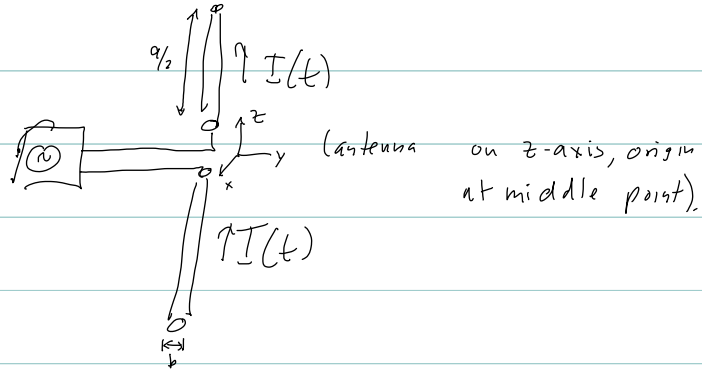 a/2
I(t)
z
y
x
(antenna on z-axis, origin
at middle point).
I(t)
b